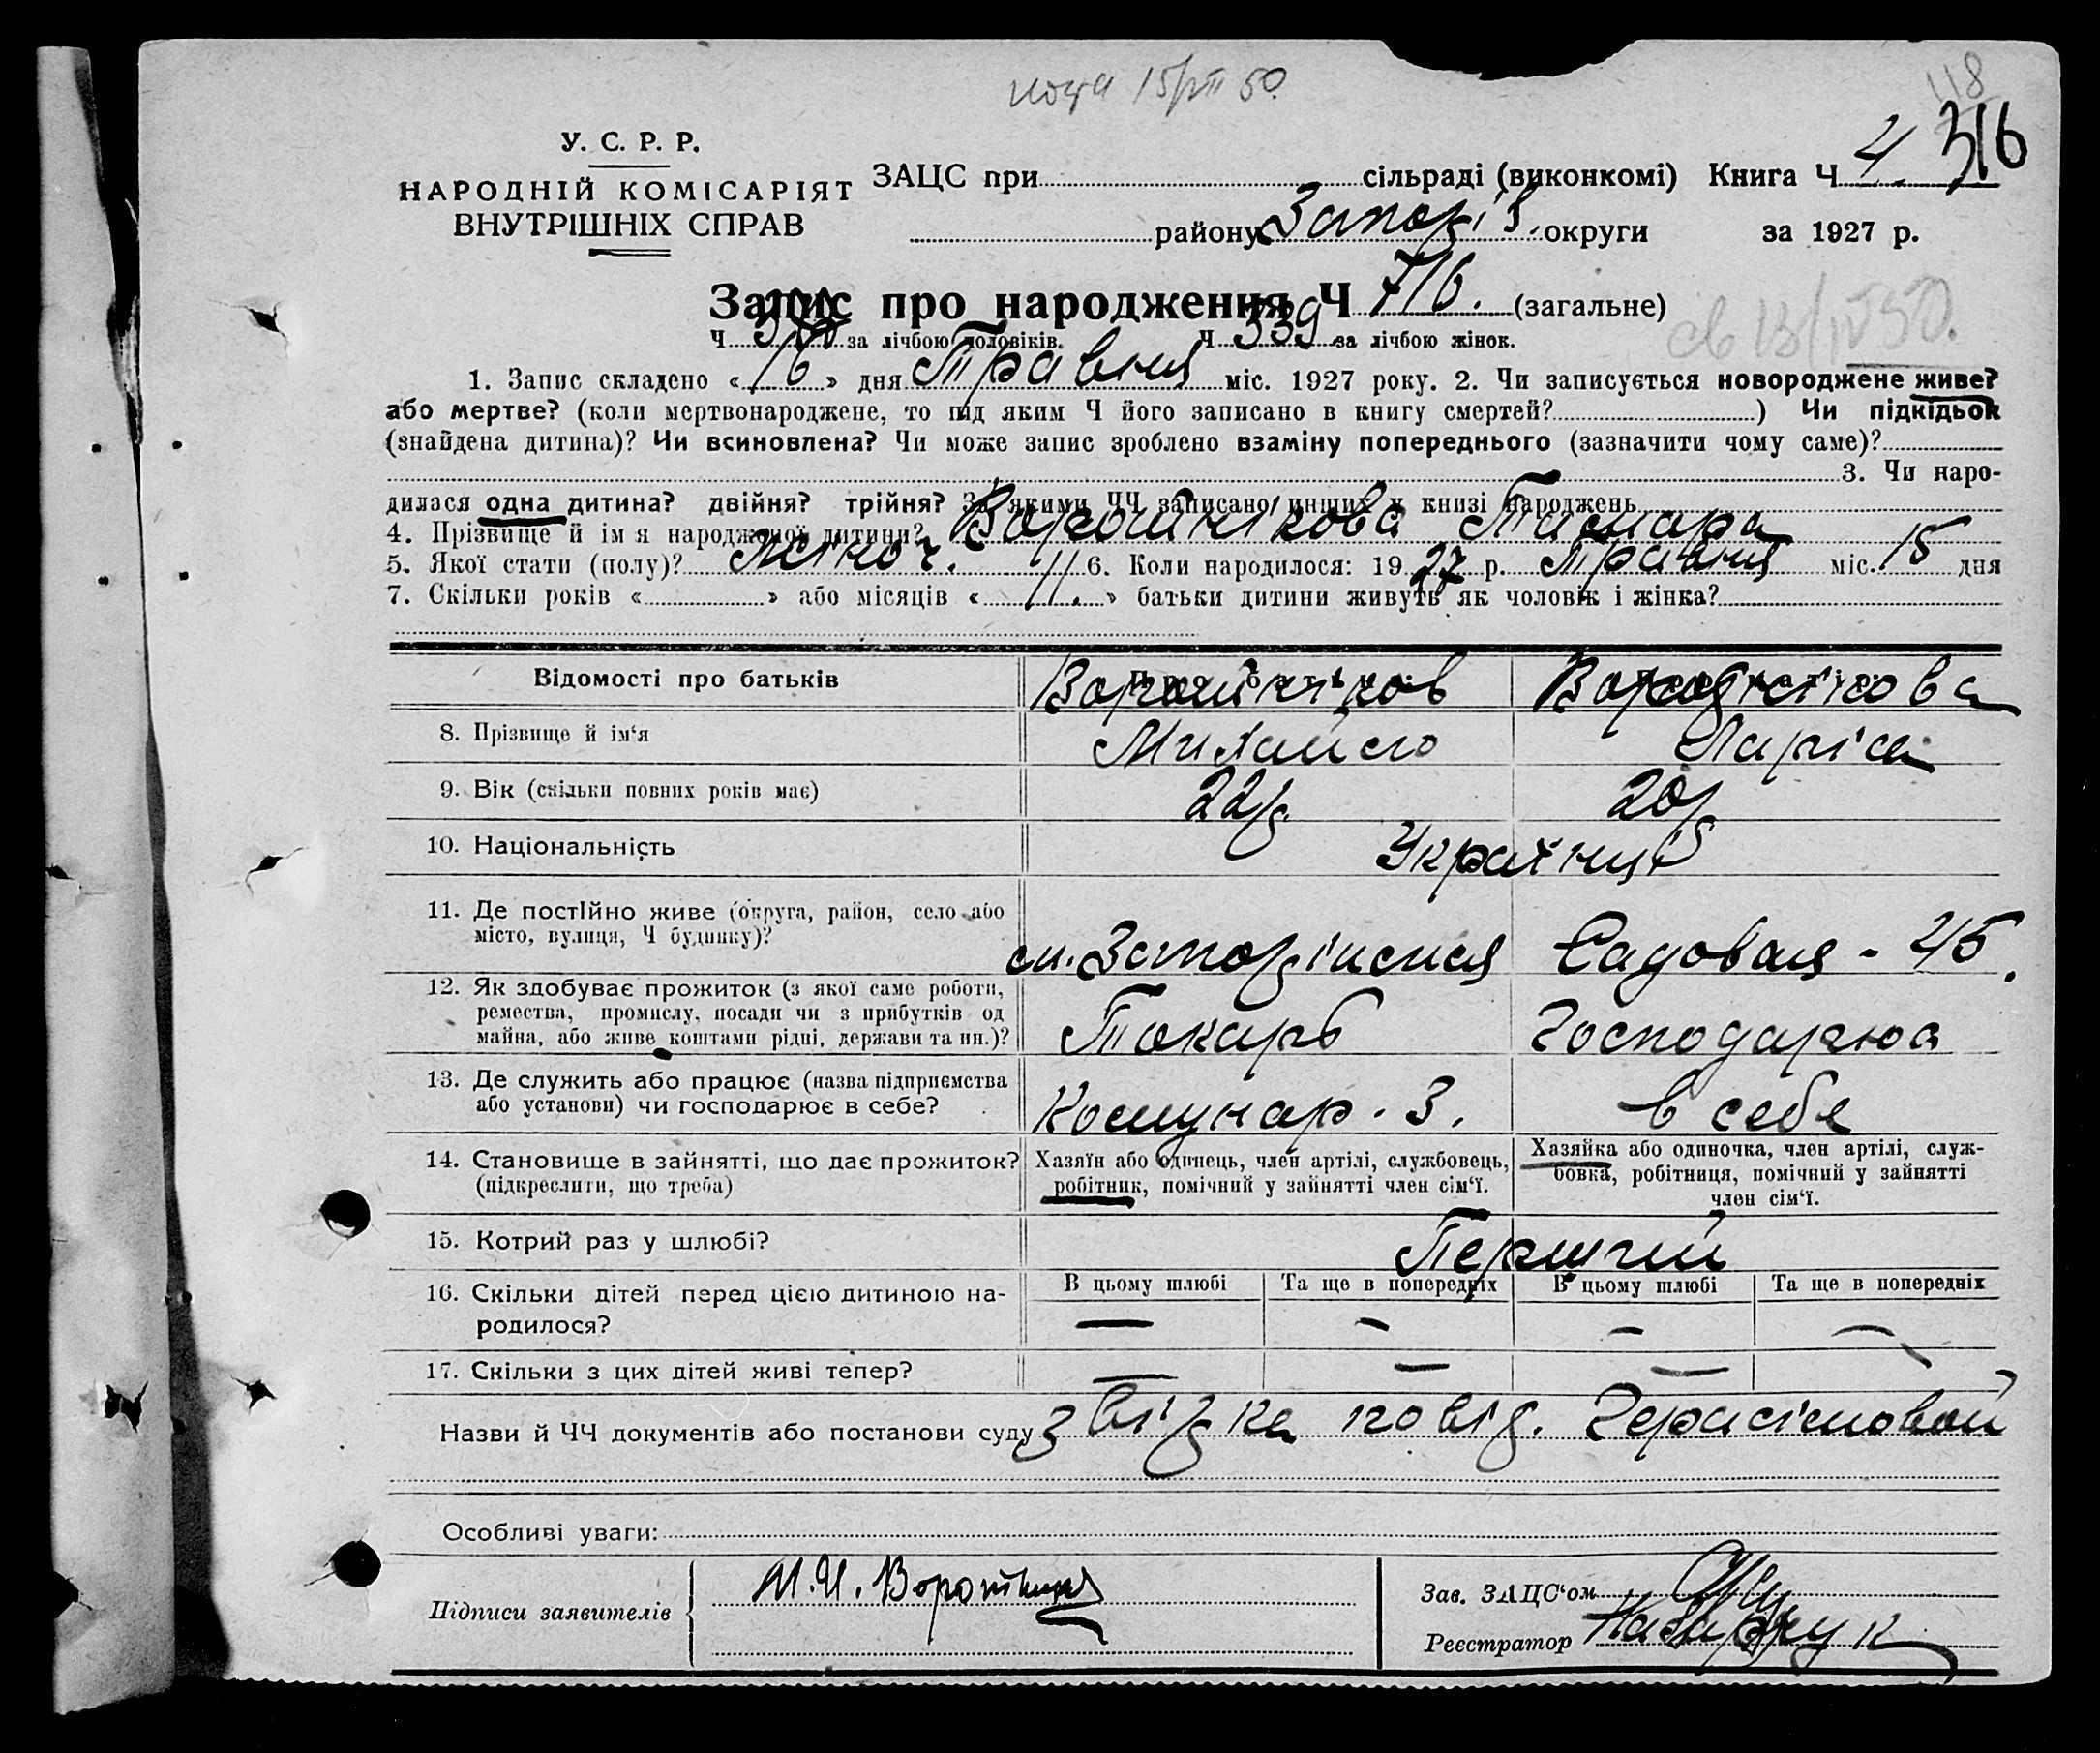 118
316
У. С. Р. Р.
НАРОДНІЙ КОМІСАРІЯТ
ВНУТРІШНІХ СПРАВ
ЗАЦС при сільраді (виконкомі) Книга Ч 4.
району Запоріз. округи за 1927 р.
Запис про народження Ч 716. (загальне)
Ч за лічбою чоловіків. Ч 339 за лічбою жінок.
1. Запис складено « 16 » дня Травня міс. 1927 року. 2. Чи записується новороджене живе?
або мертве? (коли мертвонароджене, то під яким Ч його записано в книгу смертей? ) Чи підкідьок
(знайдена дитина)? Чи всиновлена? Чи може запис зроблено взаміну попереднього (зазначити чому саме)?
3. Чи наро-
дилася одна дитина? двійня? трійня? За якими ЧЧ записано инших у книзі народжень
4. Прізвище й ім я народженої дитини? Воротнікова Тамара
5. Якої стати (полу)? Жіноч. 6. Коли народилося: 1927 р. Травня міс. 15 дня
7. Скільки років « » або місяців « 11. » батьки дитини живуть як чоловік і жінка?
Відомості про батьків Воротніков Воротнікова
8. Прізвище й ім'я Михайло Ларіса
9. Вік (скільки повних років має) 22 р. 20 р
10. Національність Українці
11. Де постійно живе (округа, район, село або
місто, вулиця, Ч будинку)? м. Запоріжжя Садовая - 45.
12. Як здобуває прожиток (з якої саме роботи,
ремества, промислу, посади чи з прибутків од
майна, або живе коштами рідні, держави та ин.)? Токарь Господарюа
13. Де служить або працює (назва підприємства
або установи) чи господарює в себе? Комунар. З. в себе
14. Становище в зайнятті, що дає прожиток?
(підкреслити, що треба)
Хазяїн або одинець, член артілі, службовець,
робітник, помічний у зайнятті член сім'ї.
Хазяйка або одиночка, член артілі, служ-
бовка, робітниця, помічний у зайнятті
член сім'ї.
15. Котрий раз у шлюбі? Перший
В цьому шлюбі Та ще в попередніх В цьому шлюбі Та ще в попередніх
16. Скільки дітей перед цією дитиною на-
родилося? — — — —
17. Скільки з цих дітей живі тепер? — — — —
Назви й ЧЧ документів або постанови суду Звізка повід. Герасімовой
Особливі уваги:
Підписи заявителів
Зав. ЗАЦС'ом
Реєстратор